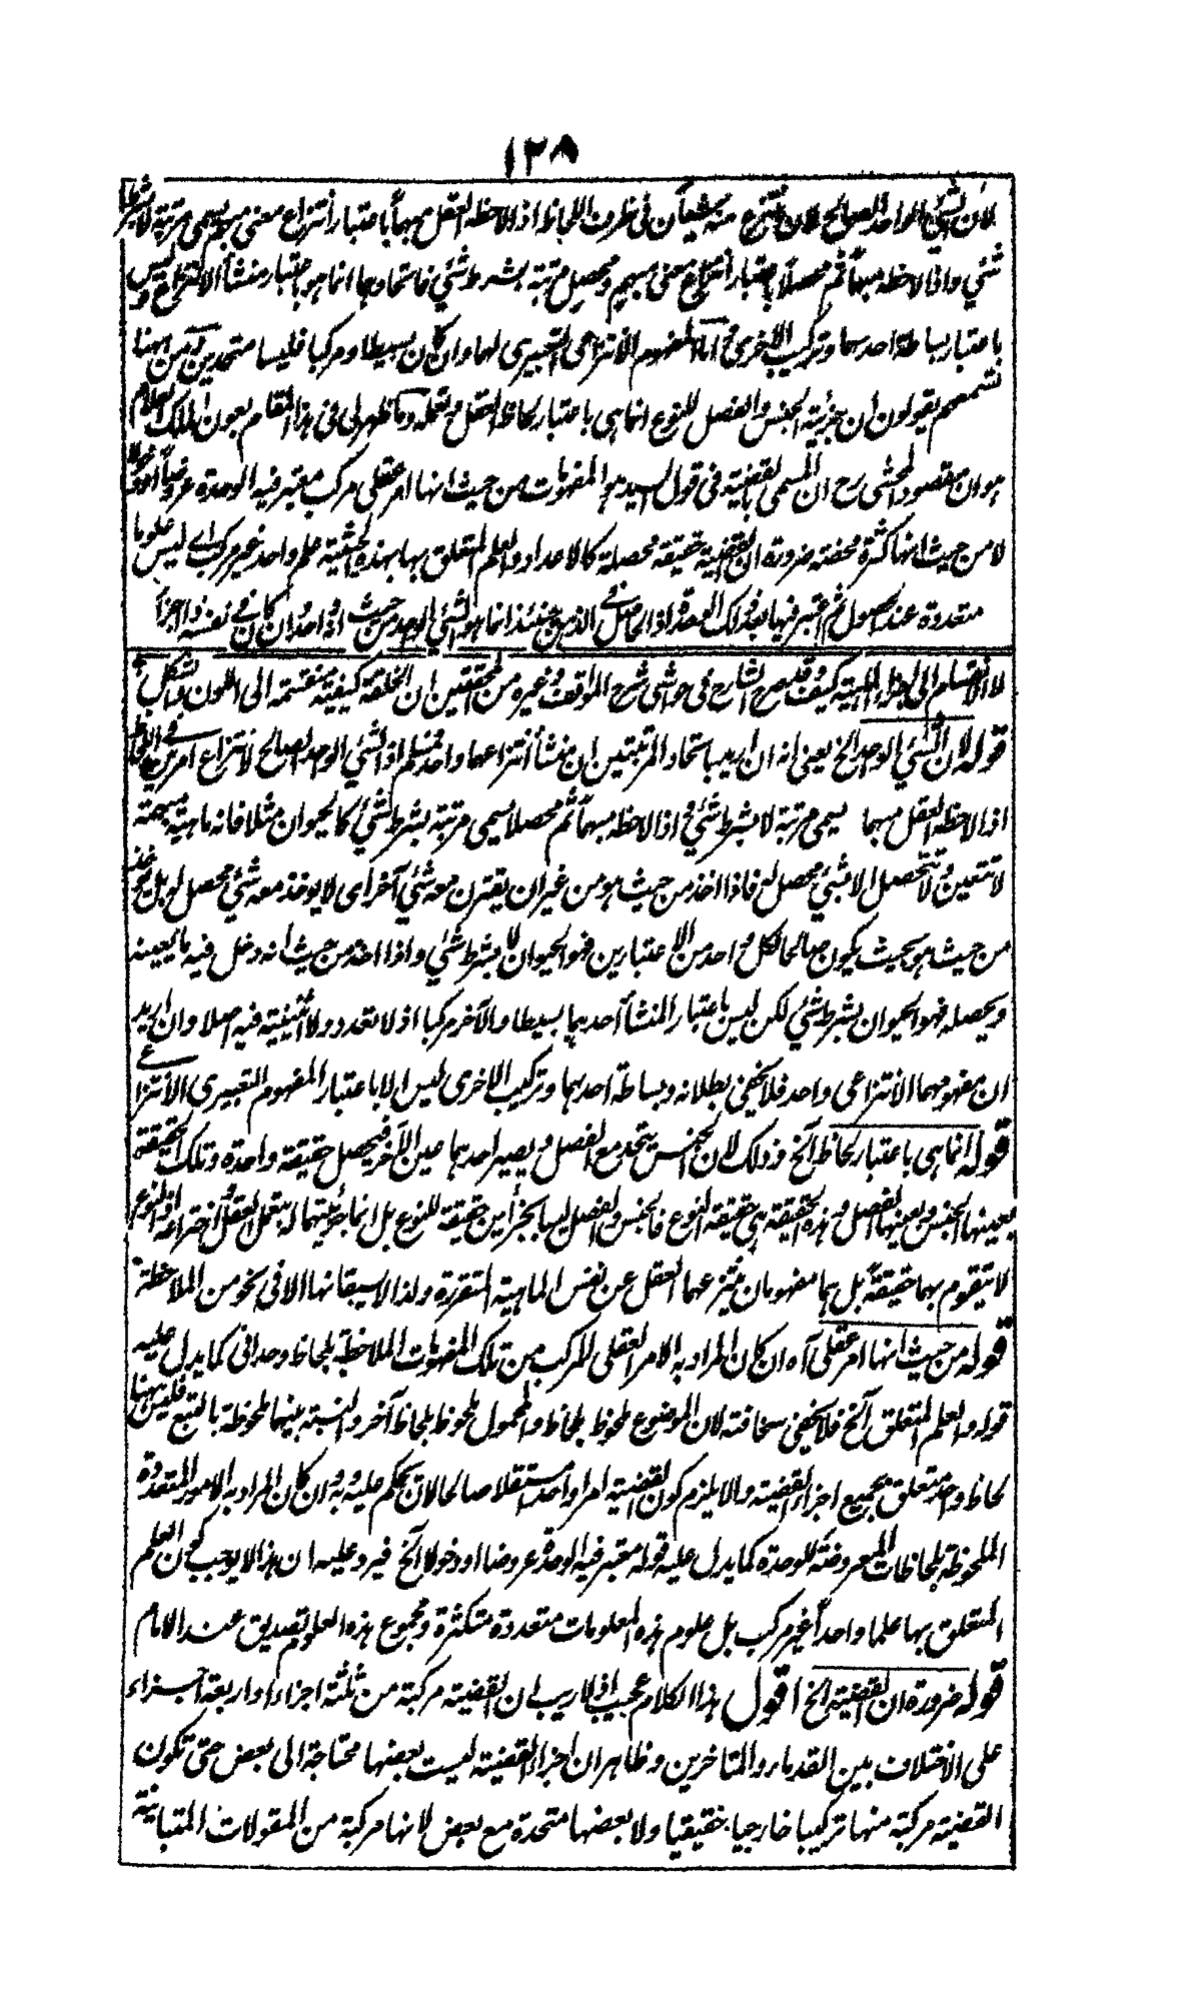 ١٢٨
لان الشئ الواحد الصالح لان ينتزع منه شيئان فى ظرف اللحاظ اذا لاحظه العقل مبهماً باعتبار انتزاع معنى مبهم يسمى مرتبة لا بشرط
شئ واذا لاحظه مبهماً ثم محصلا باعتبار انتزاع معنى مبهم ومحصل مرتبة بشرط شئ فاتحادهما انما هو باعتبار منشأ الانتزاع وليس
باعتبار بساطة احدهما وتركيب الاخرى اما المفهوم الانتزاعى التعبيرى لهما وان كان بسيطا ومركبا فليسا متحدين ومن ههنا
تسمعهم يقولون ان جزئية الجنس والفصل للنوع انما هى باعتبار لحاظ العقل وتعمله وما ظهر لى فى هذا المقام بعون الملك العلام
هو ان مقصود المحشى رح ان المسمى بالقضية فى قول السيد هو المفهومات من حيث انها امر عقلى مركب معتبر فيه الوحدة عروضاً او دخولا
لا من حيث انها كثرة محضة ضرورة ان القضية حقيقة محصلة كالاعداد والعلم المتعلق بها بهذه الحيثية علم واحد غير مركب اى ليس علوما
متعددة عند الحصول ثم اعتبر فيها بعد ذلك الوحدة اذ الحاصل فى الذهن حينئذ انما هو الشئ الواحد من حيث انه واحد وان كان فى نفسه ذا اجزاء
لا الانقسام الى اجزاء الماهية كيف وقد صرح الشارح فى حواشى شرح المواقف وغيره من المحققين ان الخلقة كيفية منقسمة الى اللون والشكل
قوله لان الشئ الواحد الخ يعنى انه ان اريد باتحاد المرتبتين ان منشأ انتزاعهما واحد فمسلم اذ الشئ الواحد الصالح لانتزاع امرين فى اللحاظ
اذا لاحظه العقل مبهما يسمى مرتبة لا بشرط شئ واذا لاحظه مبهماً ثم محصلا يسمى مرتبة بشرط شئ كالحيوان مثلا فانه ماهية مبهمة
لا تتعين ولا تتحصل الا بشئ محصل له فاذا اخذ من حيث هو من غير ان يقترن معه شئ آخر اى لا يوخذ معه شئ محصل له بل يوخذ
من حيث هو بحيث يكون صالحا لكل واحد من الاعتبارين فهو الحيوان لا بشرط شئ واذا اخذ من حيث انه دخل فيه ما يعينه
ويحصله فهو الحيوان بشرط شئ لكن ليس باعتبار المنشأ احدهما بسيطا والآخر مركبا اذ لا تعدد ولا اثنينية فيه اصلا وان اريد
ان مفهومهما الانتزاعى واحد فلا يخفى بطلانه وبساطة احدهما وتركيب الاخرى ليس الا باعتبار المفهوم التعبيرى الانتزاعى
قوله انما هى باعتبار لحاظ الخ وذلك لان الجنس يتحد مع الفصل ويصير احدهما عين الآخر فيحصل حقيقة واحدة وتلك الحقيقة
بعينها الجنس وبعينها الفصل وهذه الحقيقة هى حقيقة النوع فالجنس والفصل ليسا بجزئين حقيقة للنوع بل انما جزئيتهما له بتعمل العقل واختراعه اذ النوع
لا يتقوم بهما حقيقة بل هما مفهومان ينتزعهما العقل عن نفس الماهية المتقررة ولذا لا يسبقانها الا فى نحو من الملاحظة
قوله من حيث انها امر عقلى آه ان كان المراد به الامر العقلى المركب من تلك المفهومات الملاحظة بلحاظ وحدانى كما يدل عليه
قوله والعلم المتعلق الخ فلا يخفى سخافته لان الموضوع ملحوظ بلحاظ والمحمول ملحوظ بلحاظ آخر والنسبة بينهما ملحوظة بالتبع فليس ههنا
لحاظ واحد متعلق بجميع اجزاء القضية والا يلزم كون القضية امرا واحدا مستقلا صالحا لان يحكم عليه وبه وان كان المراد به الامور المتعددة
الملحوظة بلحاظات المعروضة للوحدة كما يدل عليه قوله معتبر فيه الوحدة عروضا او دخولا الخ فيرد عليه ان هذا لا يوجب كون العلم
المتعلق بها علما واحداً غير مركب بل علوم هذه المعلومات متعددة متكثرة ومجموع هذه العلوم تصديق عند الامام
قوله ضرورة ان القضية الخ اقول هذا الكلام عجيب اذ لا ريب ان القضية مركبة من ثلثة اجزاء او اربعة اجزاء
على الاختلاف بين القدماء والمتاخرين وظاهر ان اجزاء القضية ليست بعضها محتاجة الى بعض حتى تكون
القضية مركبة منها تركيبا خارجيا حقيقيا ولا بعضها متحدة مع بعض لانها مركبة من المقولات المتباينة